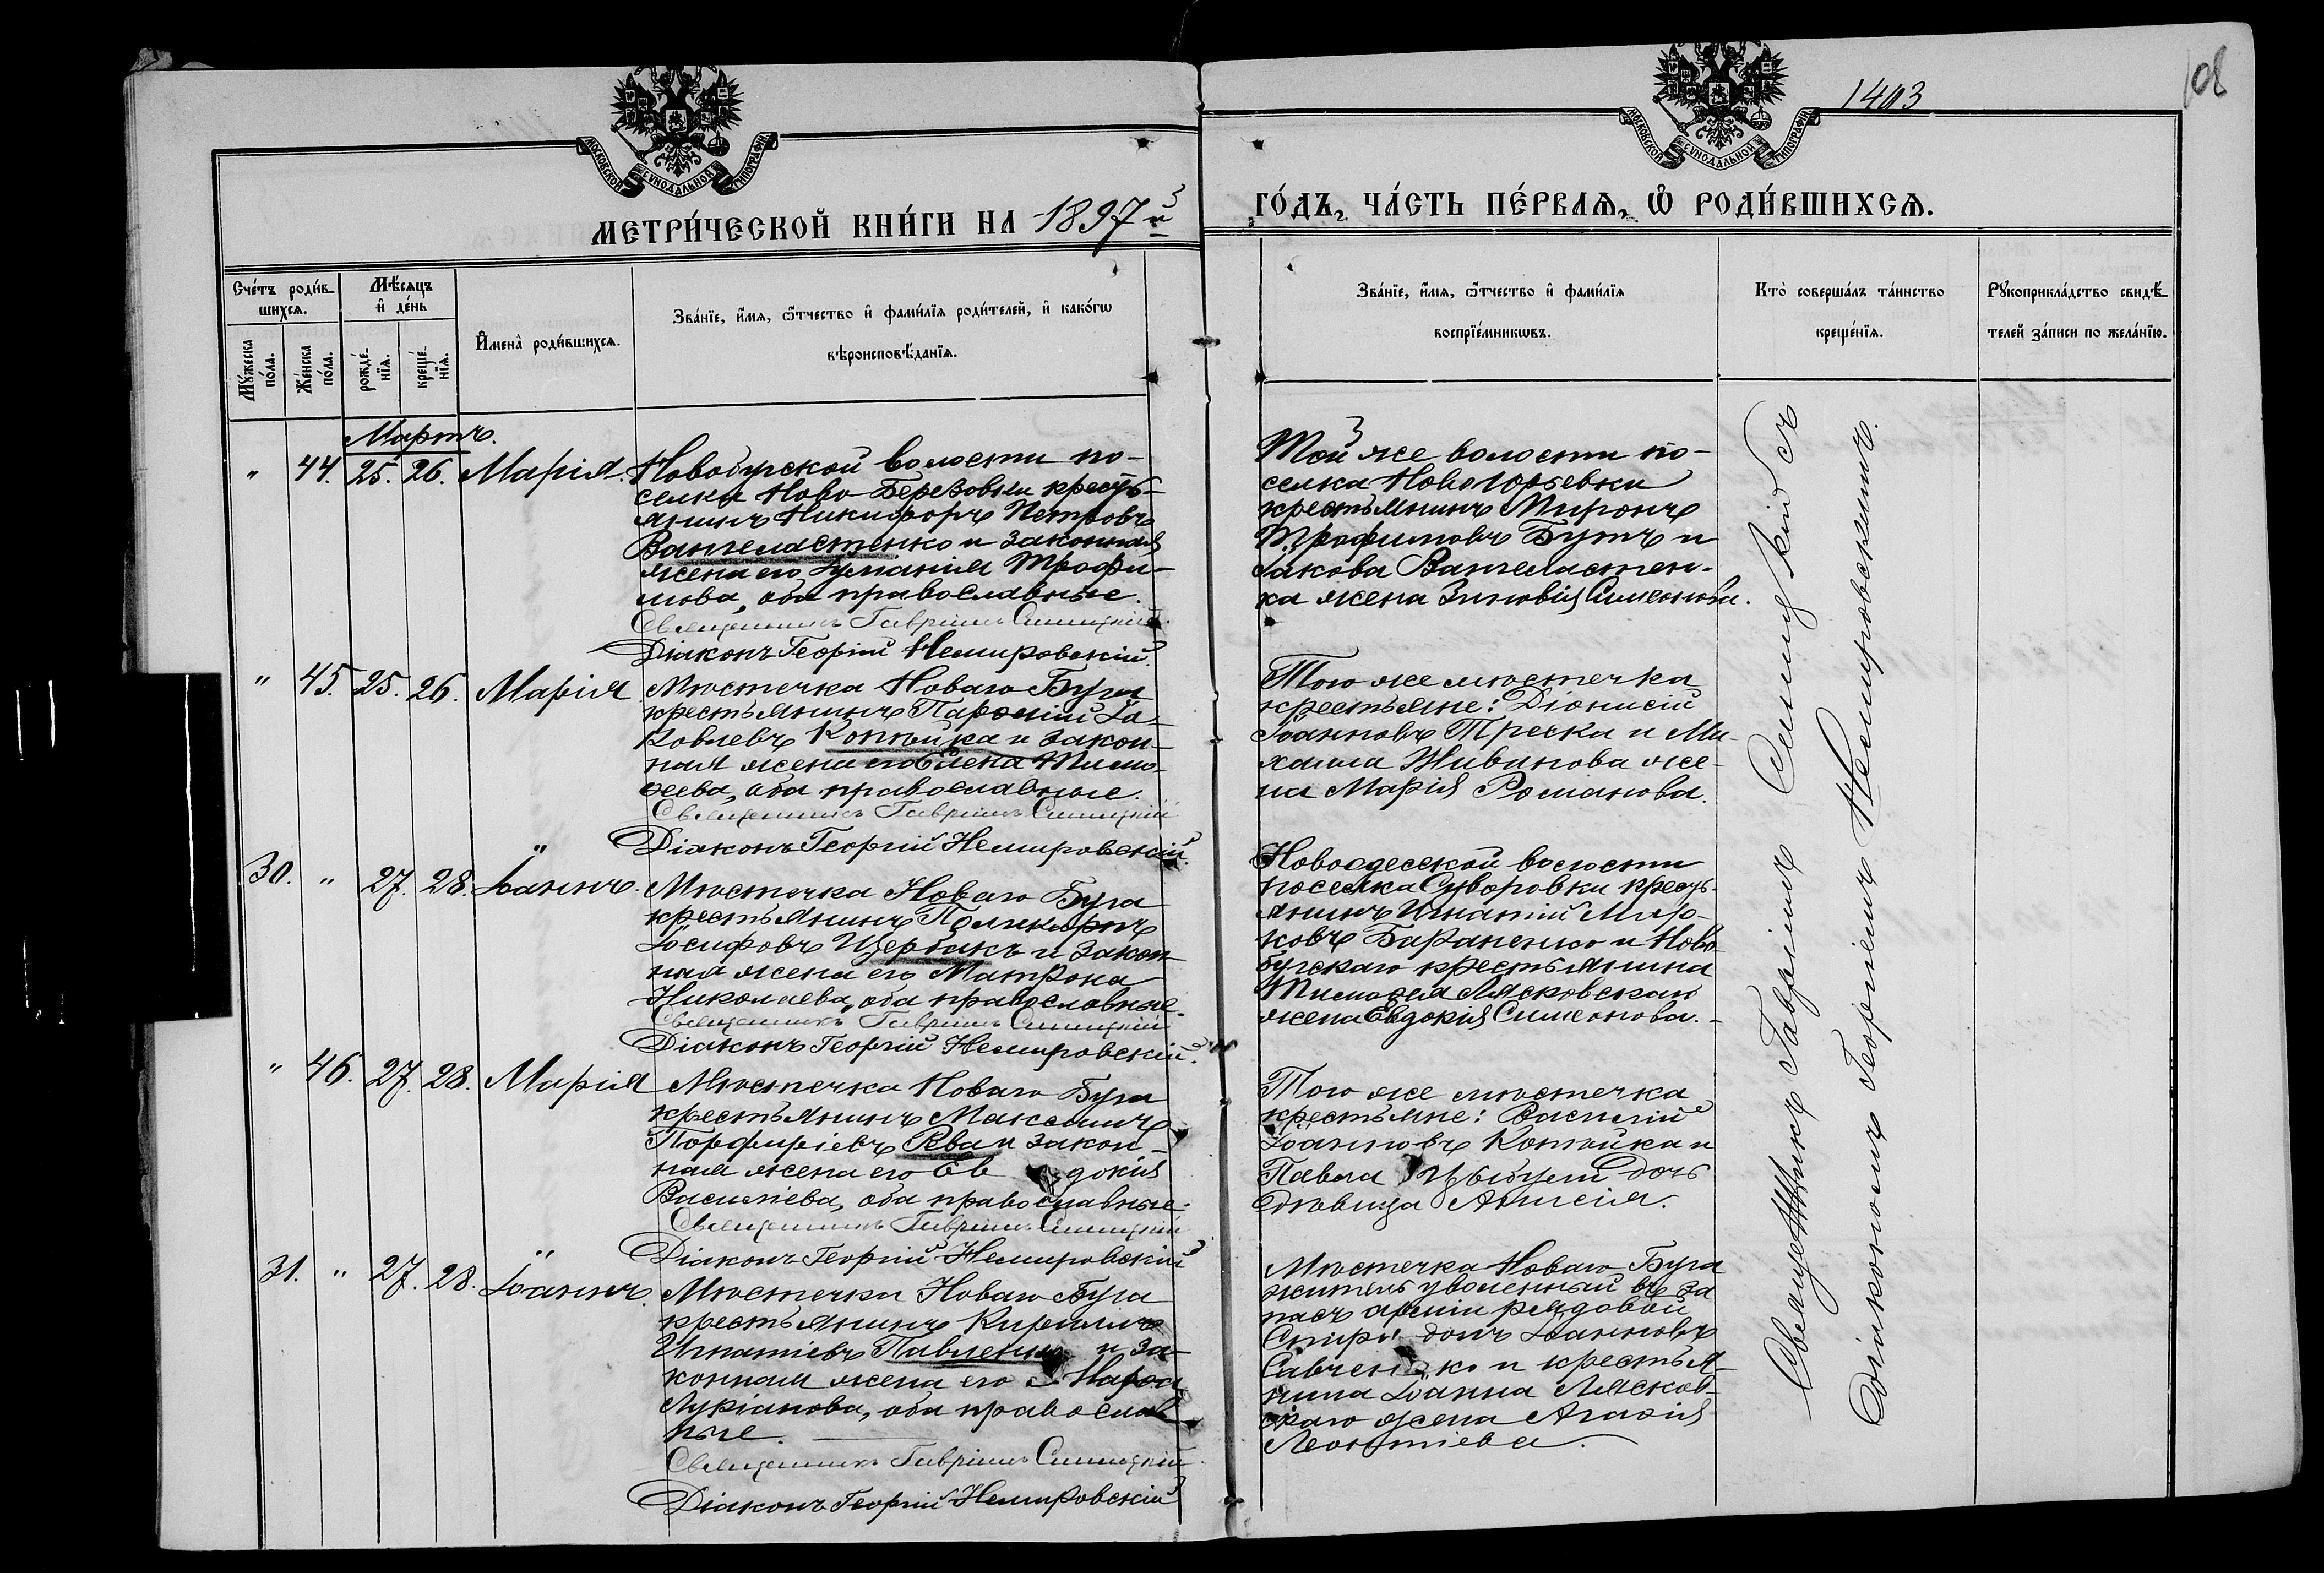 1403
108
МОСКОВСКОЙ СѴНОДАЛЬНОЙ ТИПОГРАФІИ
МОСКОВСКОЙ СѴНОДАЛЬНОЙ ТИПОГРАФІИ
МЕТРИ́ЧЕСКОЙ КНИ́ГИ НА 1897й
ГО́ДЪ, ЧА́СТЬ ПЕ́РВАѦ, Ѡ РОДИ́ВШИХСѦ.
Сче́тъ роди́в-
шихсѧ.
Му́жеска по́ла.
Же́нска по́ла.
Мѣ́сѧцъ
и҆ де́нь
рожде́-
нїѧ.
креще́-
нїѧ.
И҆мена̀ роди́вшихсѧ.
Зва́нїе, и҆́мѧ, ѻ҆́тчество и҆ фами́лїѧ роди́телей, и҆ како́гѡ
вѣроисповѣ́данїѧ.
Зва́нїе, и҆́мѧ, ѻ҆́тчество и҆ фами́лїѧ
воспрїе́мникѡвъ.
Кто̀ соверша́лъ та́инство
креще́нїѧ.
Рꙋкоприкла́дство свидѣ́-
телей за́писи по жела́нїю.
Мартъ.
" 44. 25. 26. Марія.
Новобугской волости по-
селка Ново-Березовки кресть-
янинъ Никифоръ Петровъ
Вангеластенко и законная
жена его Трофи-
мова, оба православные.
Священникъ Гавріилъ Синицкій.
Діаконъ Георгій Немировскій.
Той же волости по-
селка Новоюрьевки
крестьянинъ Миронъ
Трофимовъ Бутъ и
Іакова Вангеластен-
ка жена Зиновія Симеонова.
" 45. 25. 26. Марія
Мѣстечка Новаго Буга
крестьянинъ Парѳеній Іа-
ковлевъ Копѣйка и закон-
ная жена его Елена Тимо-
ѳеева, оба православные.
Священникъ Гавріилъ Синицкій
Діаконъ Георгій Немировскій.
Того же мѣстечка
крестьяне: Діонисій
Іоанновъ Треска и Ми-
хаила Живинова же-
на Марія Романова.
30. " 27. 28. Іоаннъ.
Мѣстечка Новаго Буга
крестьянинъ Поликарпъ
Іосифовъ Щербакъ и закон-
ная жена его Матрона
Николаева, оба православные.
Священникъ Гавріилъ Синицкій
Діаконъ Георгій Немировскій.
Новоодесской волости
поселка Суворовки кресть-
янинъ Игнатій Мар-
ковъ Бараненко и Ново-
бугскаго крестьянина
Тимоѳея Лясковскаго
жена Евдокія Симеонова.
" 46. 27. 28. Марія
Мѣстечка Новаго Буга
крестьянинъ Максимъ
Порфиріевъ Рва и закон-
ная жена его Ев докія
Василіева, оба православные.
Священникъ Гавріилъ Синицкій
Діаконъ Георгій Немировскій
Того же мѣстечка
крестьяне: Василій
Іоанновъ Копѣйка и
Павла дочь
дѣвица Анисія.
31. " 27. 28. Іоаннъ.
Мѣстечка Новаго Буга
крестьянинъ Кириллъ
Игнатіевъ Павленко и за-
конная жена его Марѳа
Лукіанова, оба православ
ные.
Священникъ Гавріилъ Синицкій.
Діаконъ Георгій Немировскій
Мѣстечка Новаго Буга
житель уволенный въ за
пасъ арміи рядовой
Спиридонъ Іоанновъ
Савченко и крестья-
нина Іоанна Лясков-
скаго жена Агаѳія
Леонтіева.
Священникъ Гавріилъ Синицкій съ
діакономъ Георгіемъ Немировскимъ.